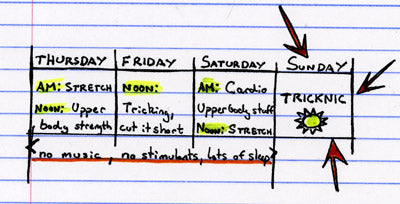 THURSDAY FRIDAY SATURDAY SUNDAY
AM: STRETCH
NOON: Upper
body strength
NOON:
Tricking,
cut it short
AM: Cardio
Upperbody stuff
NOON: STRETCH
TRICKNIC
no music, no stimulants, lots of sleep